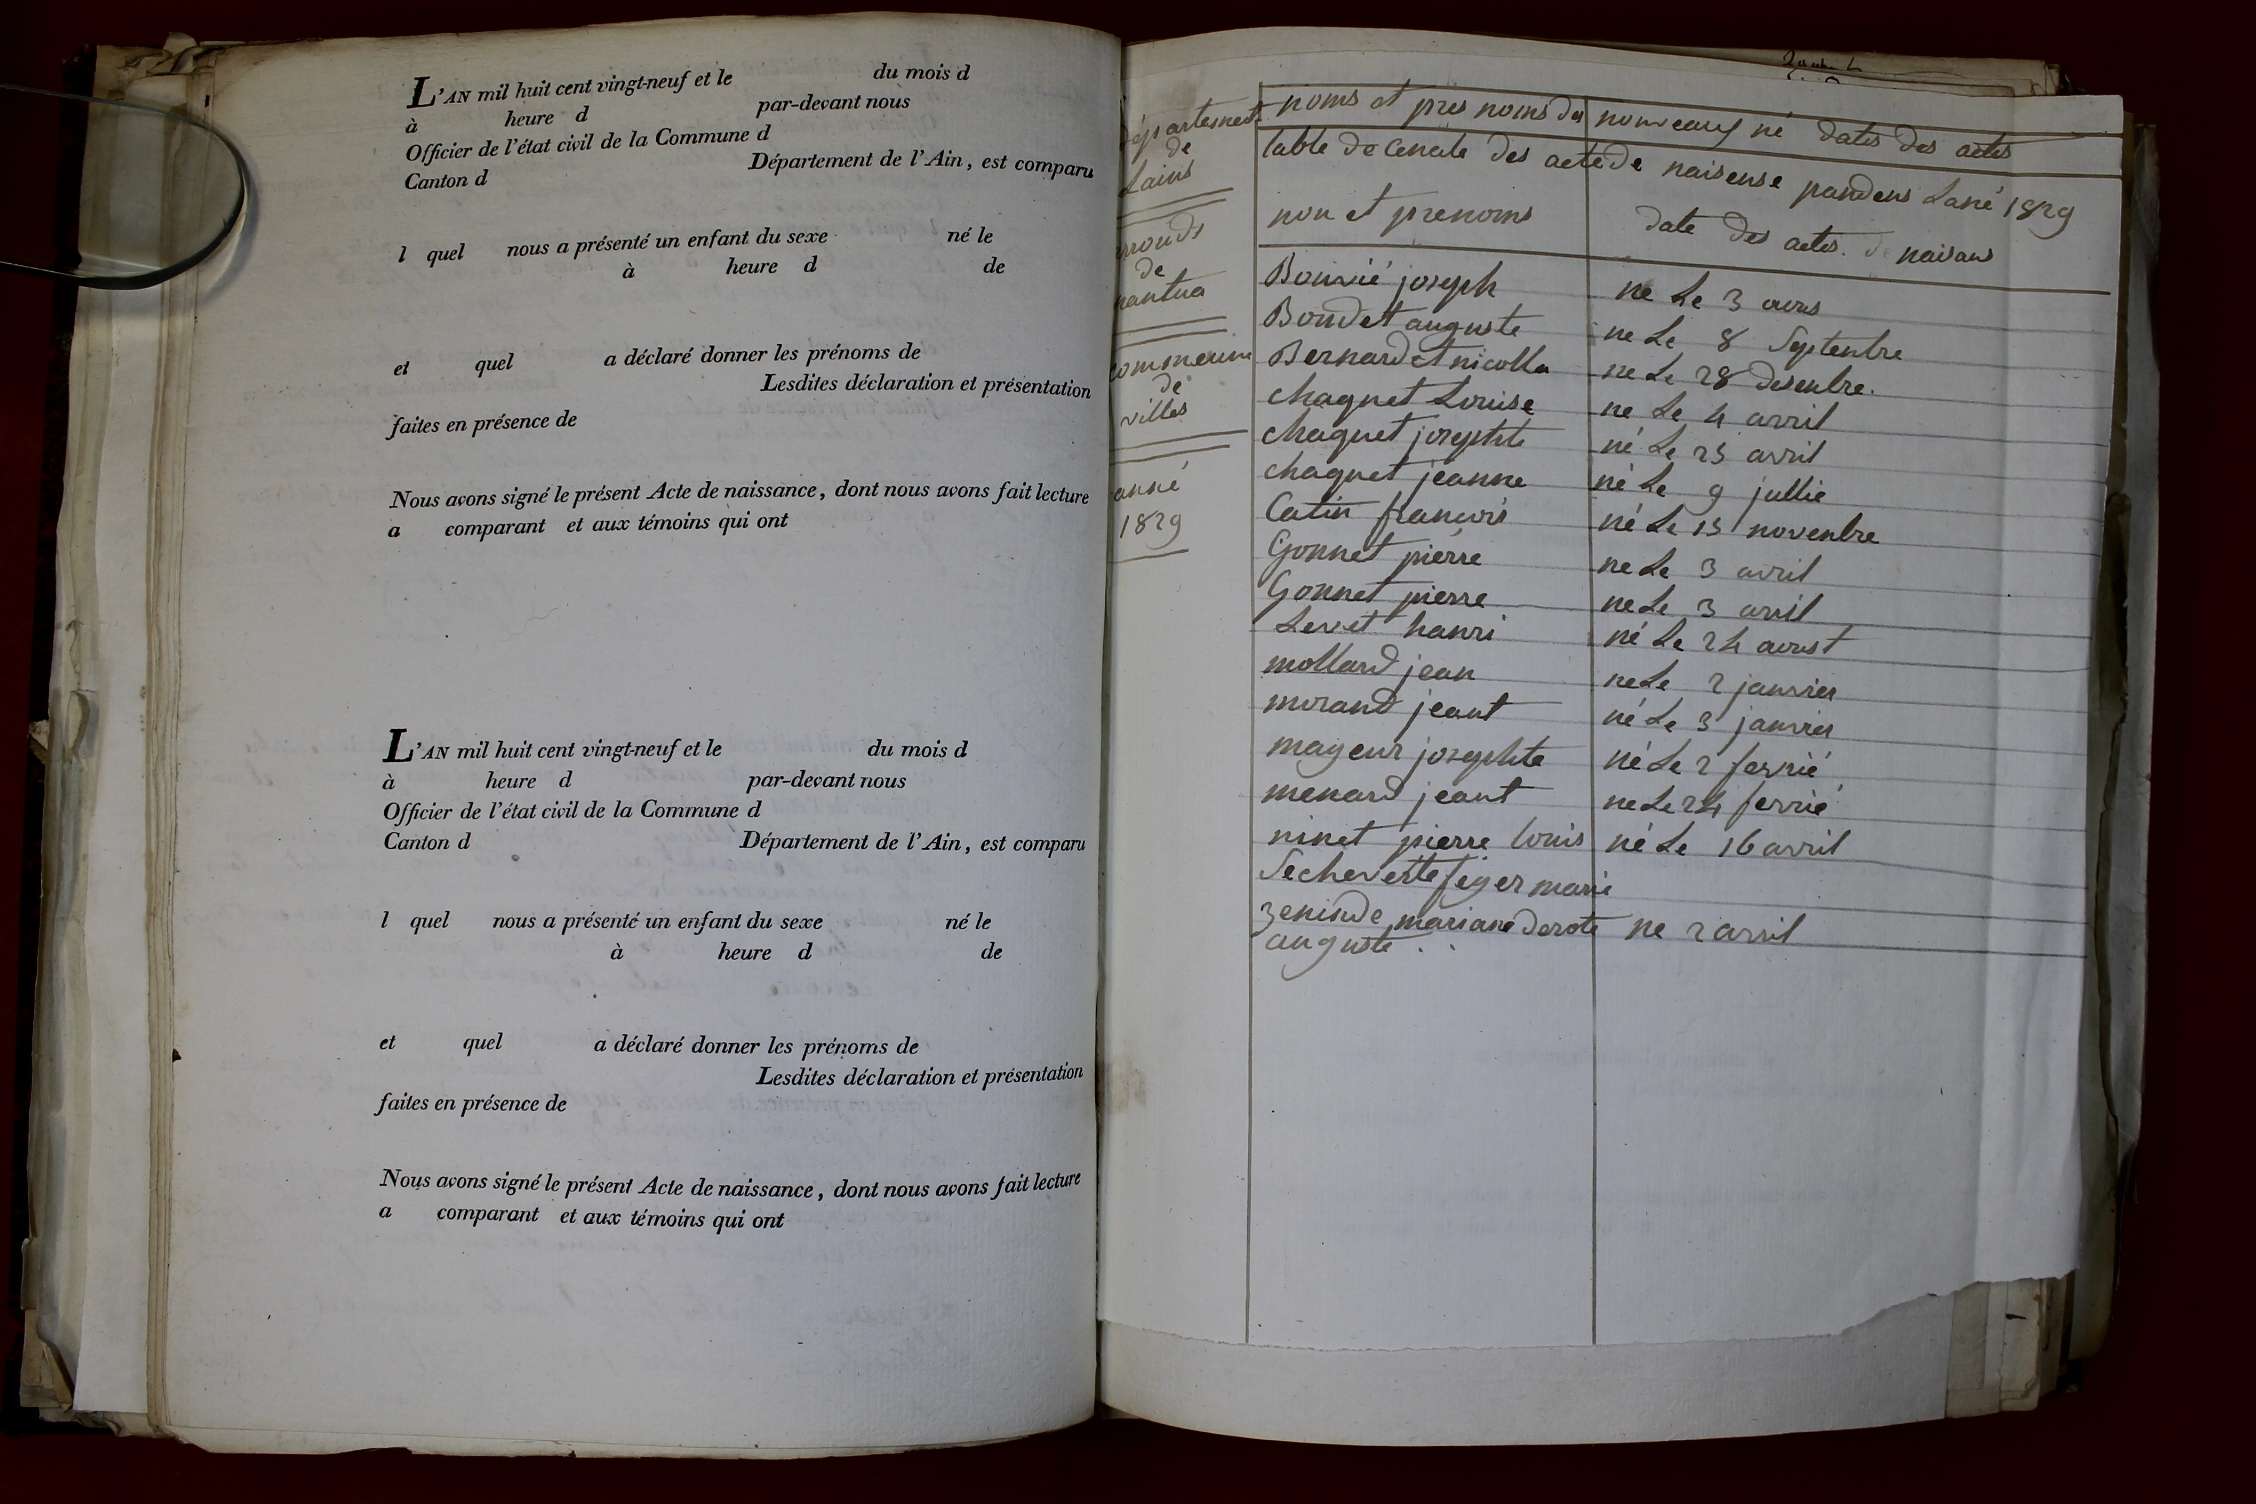 L'AN mil huit cent vingt-neuf et le du mois d
à heure d par-devant nous
Officier de l'état civil de la Commune d
Canton d Département de l'Ain, est comparu
l quel nous a présenté un enfant du sexe né le
à heure d de
et quel a déclaré donner les prénoms de
Lesdites déclaration et présentation
faites en présence de
Nous avons signé le présent Acte de naissance, dont nous avons fait lecture
a comparant et aux témoins qui ont
L'AN mil huit cent vingt-neuf et le du mois d
à heure d par-devant nous
Officier de l'état civil de la Commune d
Canton d Département de l'Ain, est comparu
l quel nous a présenté un enfant du sexe né le
à heure d de
et quel a déclaré donner les prénoms de
Lesdites déclaration et présentation
faites en présence de
Nous avons signé le présent Acte de naissance, dont nous avons fait lecture
a comparant et aux témoins qui ont
département
de
Lains
de
nantua
commeune
de
villes
anné
1829
noms et pres noms des nouveaux né dates des actes
table de cenale des acte de naisense pandens Lané 1829
non et prenoms date des actes de naisans
Bouvié joseph ne Le 3 aous
Boudet auguste ne Le 8 Septenbre
Bernard et nicolla ne Le 28 desenbre.
chaquet Louise ne Le 4 avril
chaquet josephte né Le 25 avril
chaquet jeanne né Le 9 jullie
Catin francois né Le 15 novenbre
Gonnet pierre ne Le 3 avril
Gonnet pierre ne Le 3 avril
Levet hanri né Le 24 aoust
mollard jean ne Le 2 janvier
morand jeant né Le 3 janvier
mayeur josephte né Le 2 fevrié
menard jeant ne Le 24 fevrié
ninet pierre louis né Le 16 avril
Secheverte marie
mariane derote ne 2 avril
auguste